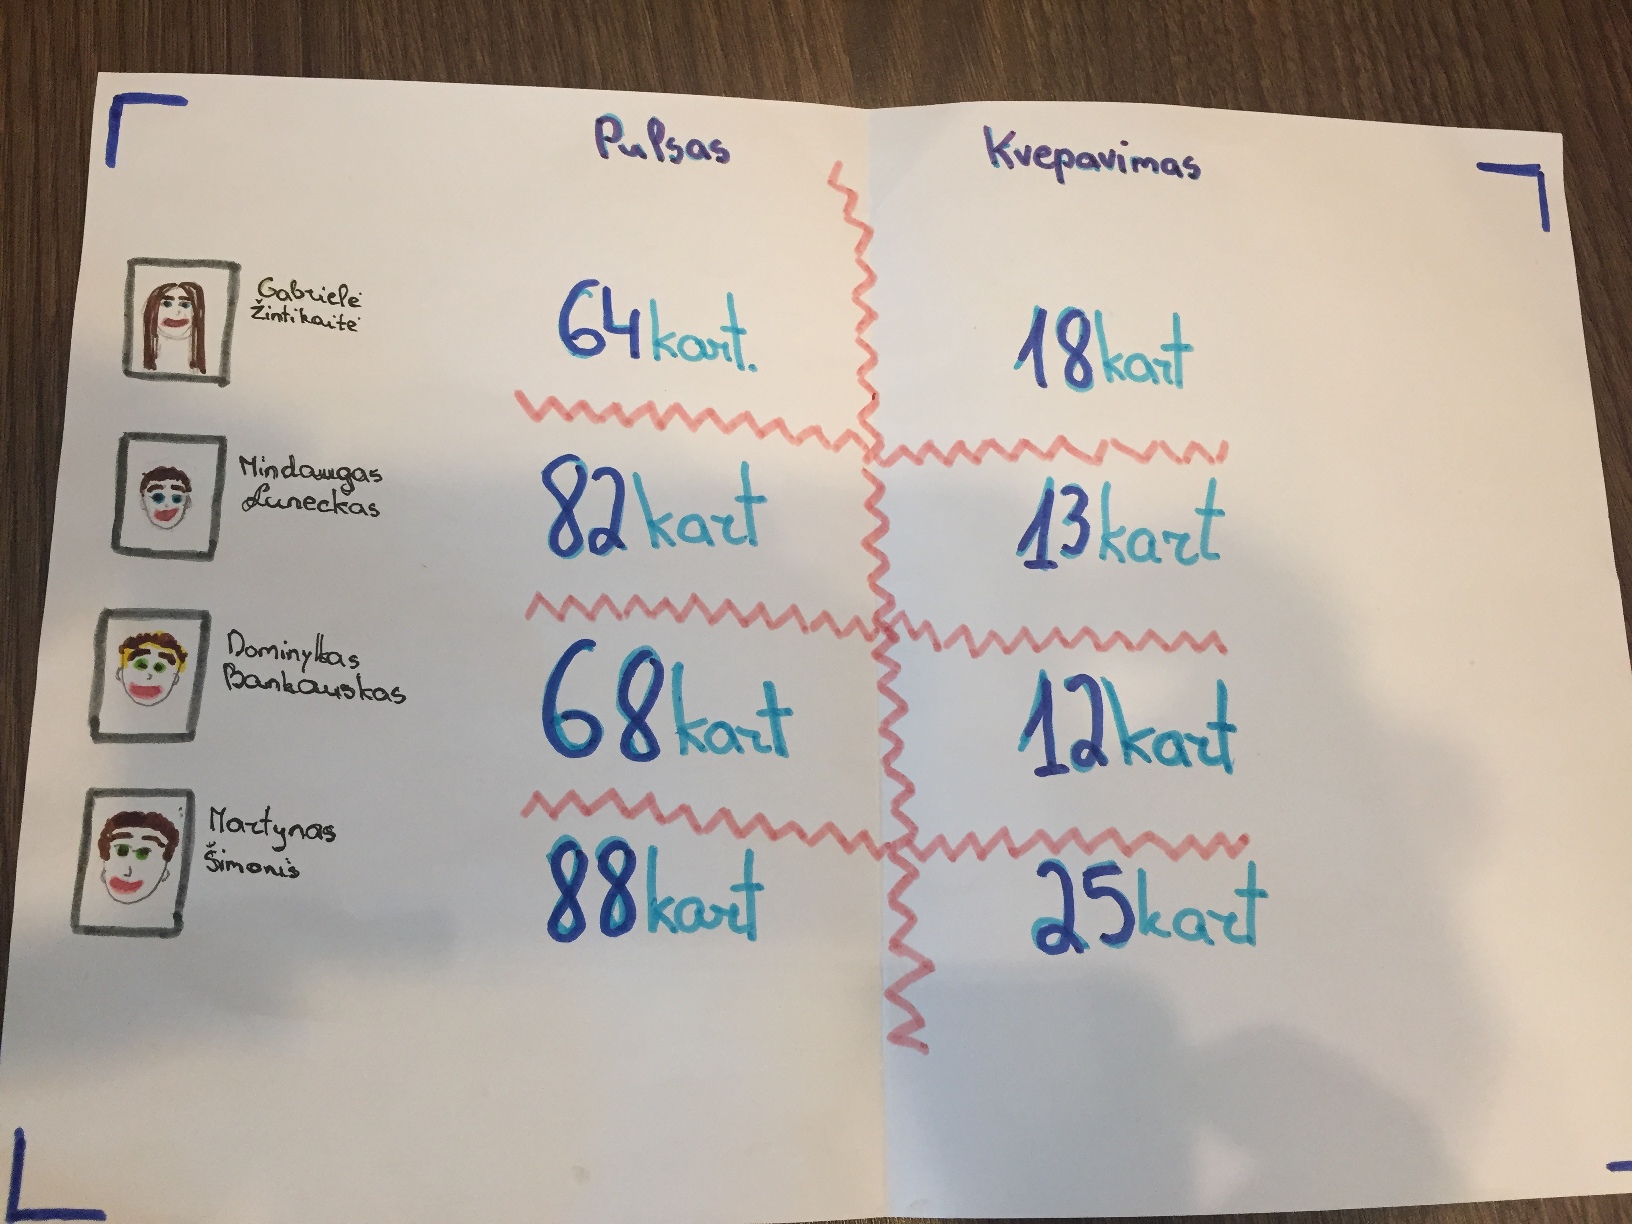 Pulsas
Kvepavimas
Gabrielė
Žintikaitė
64 kart.
18 kart
Mindaugas
Luneckas
82 kart
13 kart
Dominykas
Bankauskas
68 kart
12 kart
Martynas
Šimonis
88 kart
25 kart